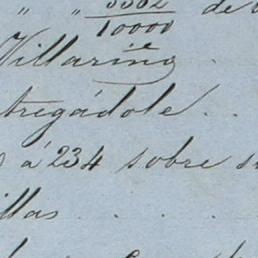 " " 3382/10000 de
Villarino
tregádole . .
á 234 sobre s
illas . . . .